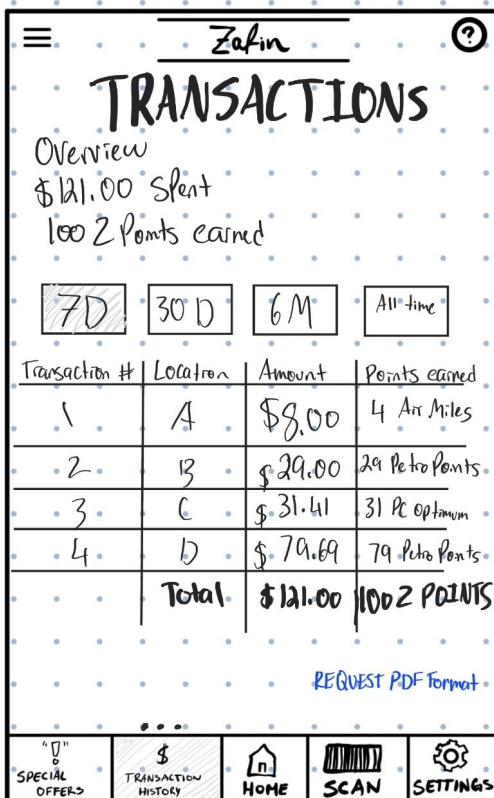 Zafin
?
TRANSACTIONS
Overview
$121.00 Spent
100 Z Points earned
7D 30 D 6 M All time
Transaction # Location Amount Points earned
1 A $8.00 4 Air Miles
2 B $29.00 29 Petro Points
3 C $31.41 31 PC Optimum
4 D $79.69 79 Petro Points
Total $121.00 100 Z POINTS
REQUEST PDF Format
"!" $
SPECIAL OFFERS TRANSACTION HISTORY HOME SCAN SETTINGS